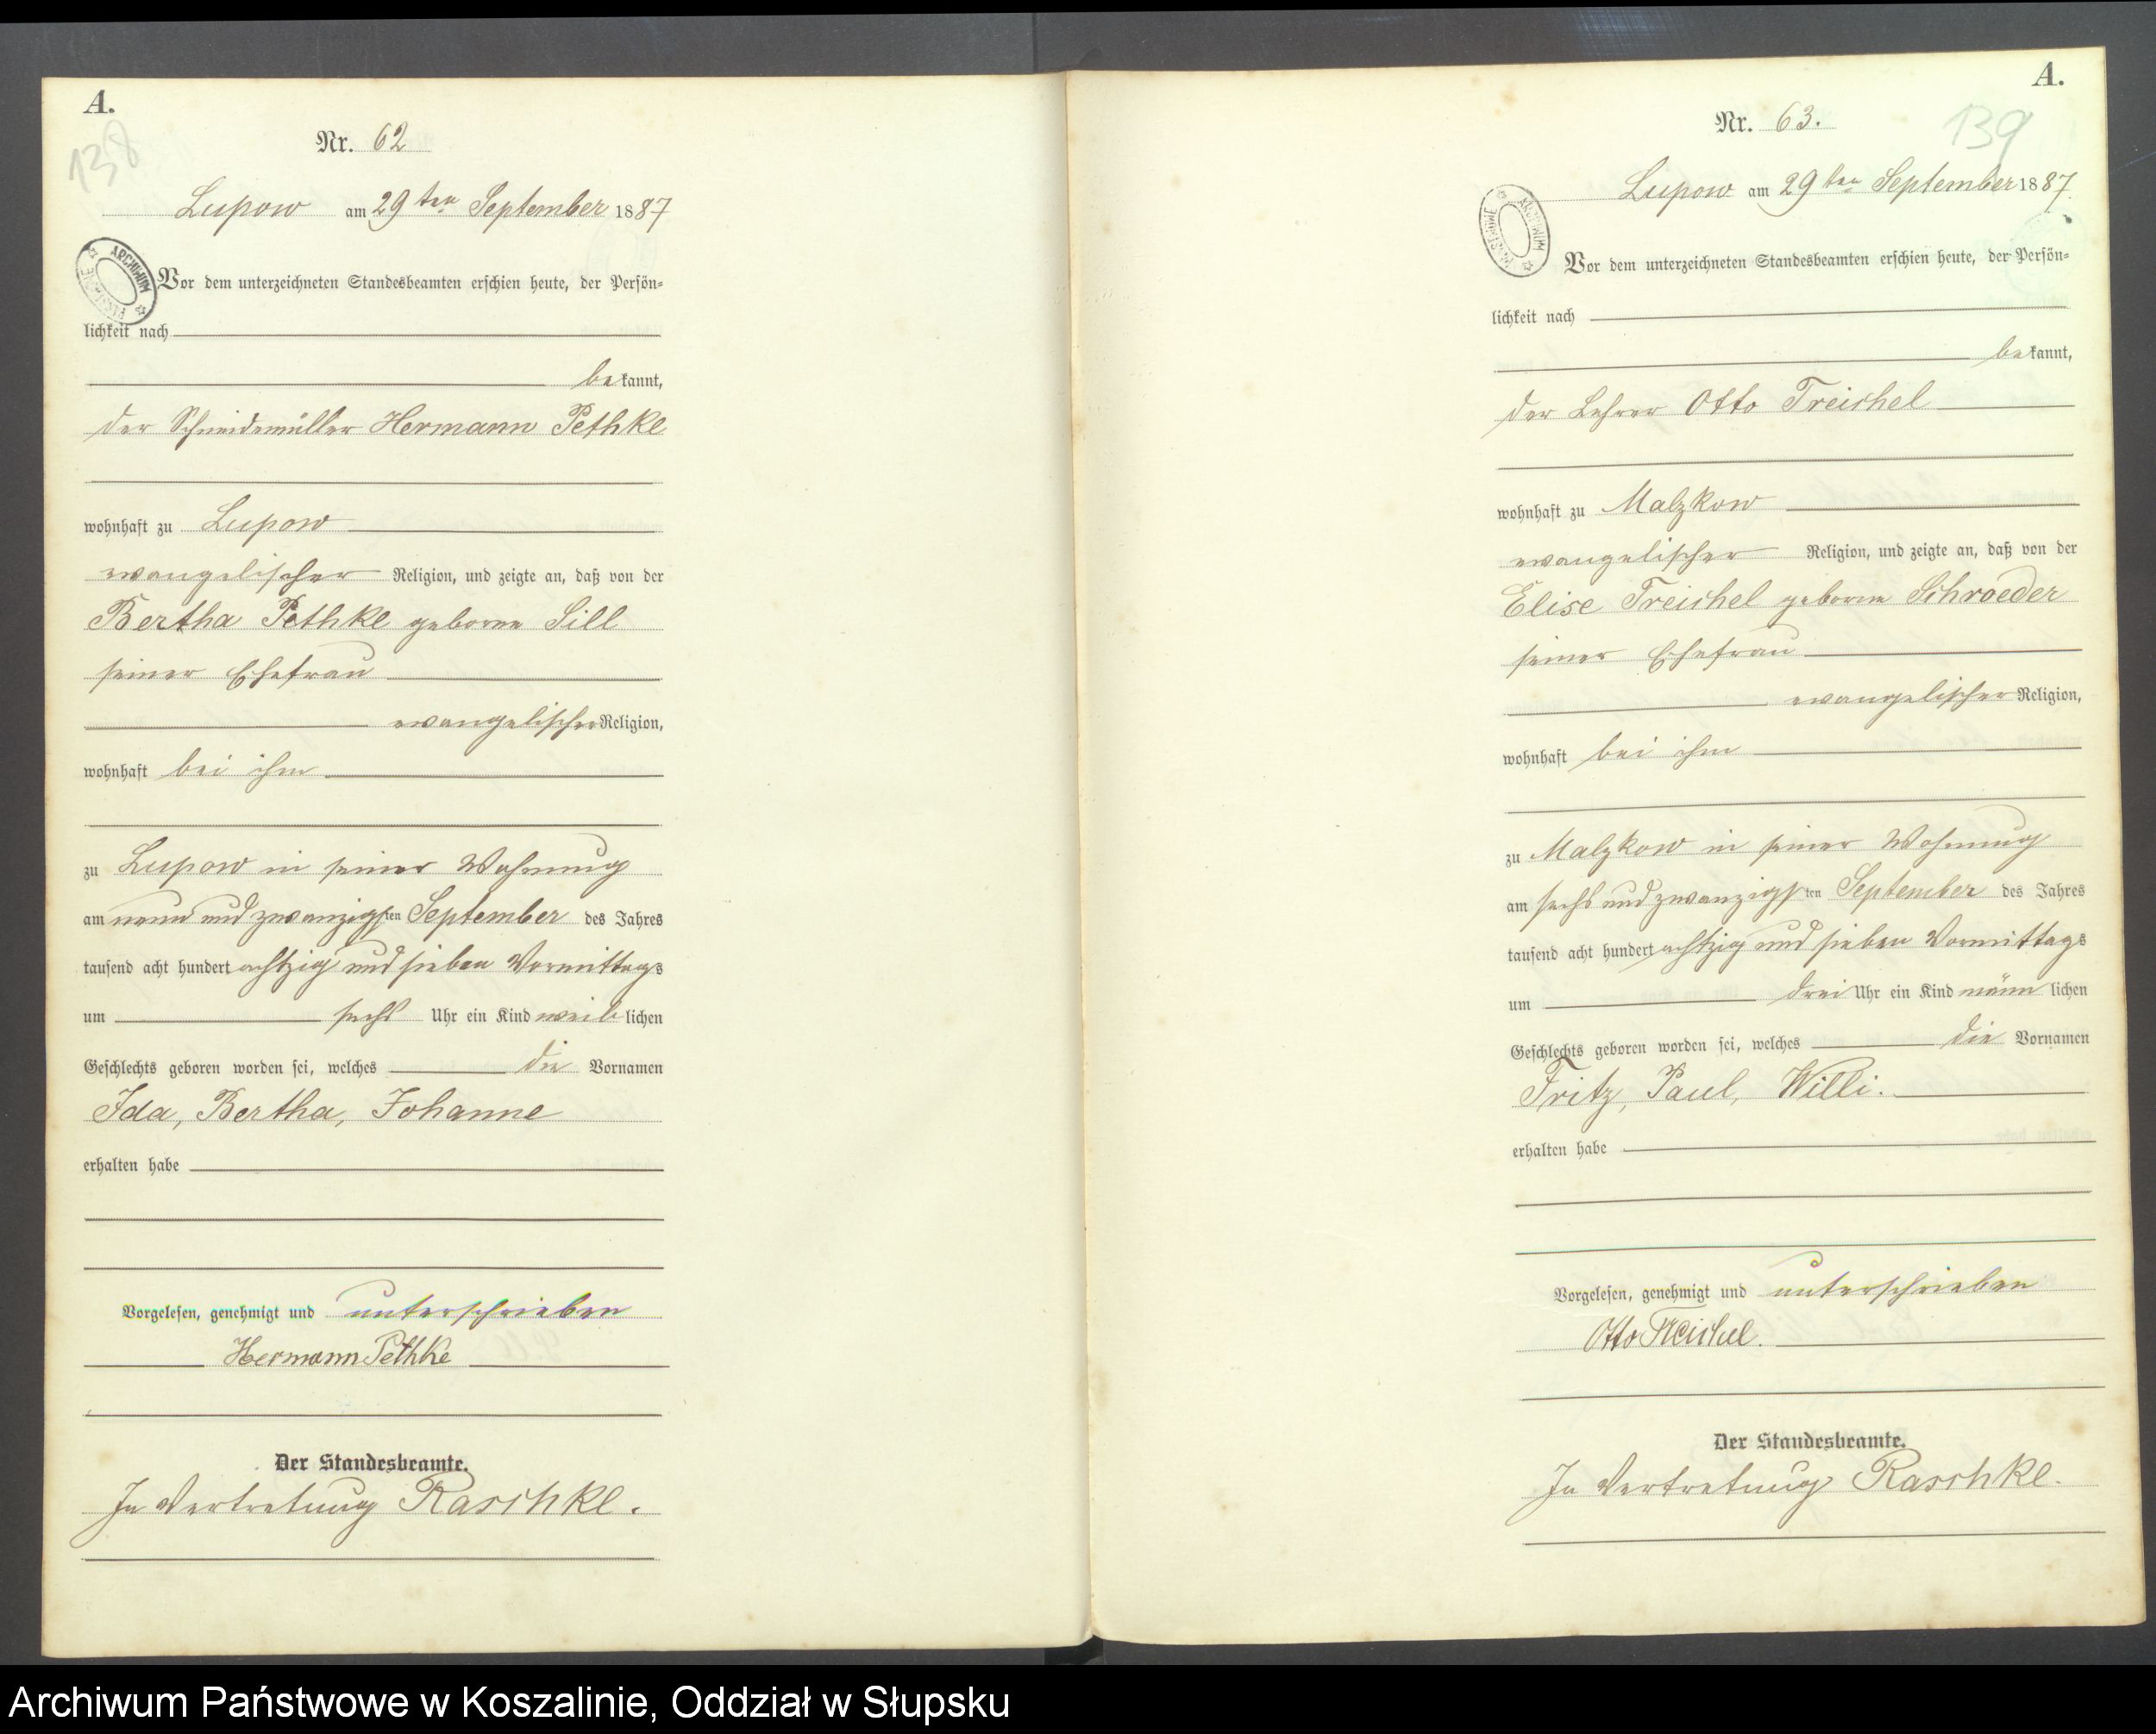 A.
138
Nr. 62
Lupow am 29ten September 1887
ARCHIWUM PAŃSTWOWE
Vor dem unterzeichneten Standesbeamten erschien heute, der Persön-
lichkeit nach
bekannt,
der Schneidemüller Hermann Pethke
wohnhaft zu Lupow
evangelischer Religion, und zeigte an, daß von der
Bertha Pethke geborne Sill
seiner Ehefrau
evangelischer Religion,
wohnhaft bei ihm
zu Lupow in seiner Wohnung
am neun und zwanzigsten September des Jahres
tausend acht hundert achtzig und sieben Vormittags
um sechs Uhr ein Kind weiblichen
Geschlechts geboren worden sei, welches die Vornamen
Ida, Bertha, Johanne
erhalten habe
Vorgelesen, genehmigt und unterschrieben
Hermann Pethke
Der Standesbeamte.
In Vertretung Raschke.
A.
139
Nr. 63.
Lupow am 29ten September 1887.
ARCHIWUM PAŃSTWOWE
Vor dem unterzeichneten Standesbeamten erschien heute, der Persön-
lichkeit nach
bekannt,
der Lehrer Otto Treichel
wohnhaft zu Malzkow
evangelischer Religion, und zeigte an, daß von der
Elise Treichel geborne Schroeder
seiner Ehefrau
evangelischer Religion,
wohnhaft bei ihm
zu Malzkow in seiner Wohnung
am sechs und zwanzigsten September des Jahres
tausend acht hundert achtzig und sieben Vormittags
um drei Uhr ein Kind männlichen
Geschlechts geboren worden sei, welches die Vornamen
Fritz, Paul, Willi.
erhalten habe
Vorgelesen, genehmigt und unterschrieben
Otto Treichel.
Der Standesbeamte.
In Vertretung Raschke.
Archiwum Państwowe w Koszalinie, Oddział w Słupsku